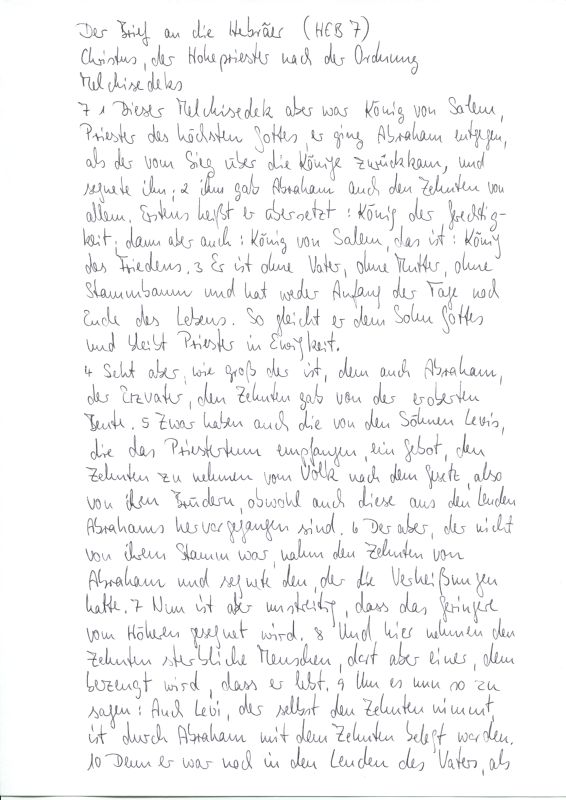 Der Brief an die Hebräer (HEB 7)
Christus, der Hohepriester nach der Ordnung
Melchisedeks
7 1 Dieser Melchisedek aber war König von Salem,
Priester des höchsten Gottes, er ging Abraham entgegen,
als der vom Sieg über die Könige zurückkam, und
segnete ihn; 2 ihm gab Abraham auch den Zehnten von
allem. Erstens heißt er übersetzt: König der Gerechtig-
keit; dann aber auch: König von Salem, das ist: König
des Friedens. 3 Er ist ohne Vater, ohne Mutter, ohne
Stammbaum und hat weder Anfang der Tage noch
Ende des Lebens. So gleicht er dem Sohn Gottes
und bleibt Priester in Ewigkeit.
4 Seht aber, wie groß der ist, dem auch Abraham,
der Erzvater, den Zehnten gab von der eroberten
Beute. 5 Zwar haben auch die von den Söhnen Levis,
die das Priestertum empfangen, ein Gebot, den
Zehnten zu nehmen vom Volk nach dem Gesetz, also
von ihren Brüdern, obwohl auch diese aus den Lenden
Abrahams hervorgegangen sind. 6 Der aber, der nicht
von ihrem Stamm war, nahm den Zehnten von
Abraham und segnete den, der die Verheißungen
hatte. 7 Nun ist aber unstreitig, dass das Geringere
vom Höheren gesegnet wird. 8 Und hier nehmen den
Zehnten sterbliche Menschen, dort aber einer, dem
bezeugt wird, dass er lebt. 9 Um es nun so zu
sagen: Auch Levi, der selbst den Zehnten nimmt,
ist durch Abraham mit dem Zehnten belegt worden.
10 Denn er war noch in den Lenden des Vaters, als